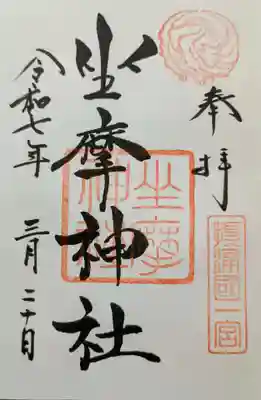 奉拝
摂津国一宮
坐摩神社
坐摩神社
令和七年
三月二十日